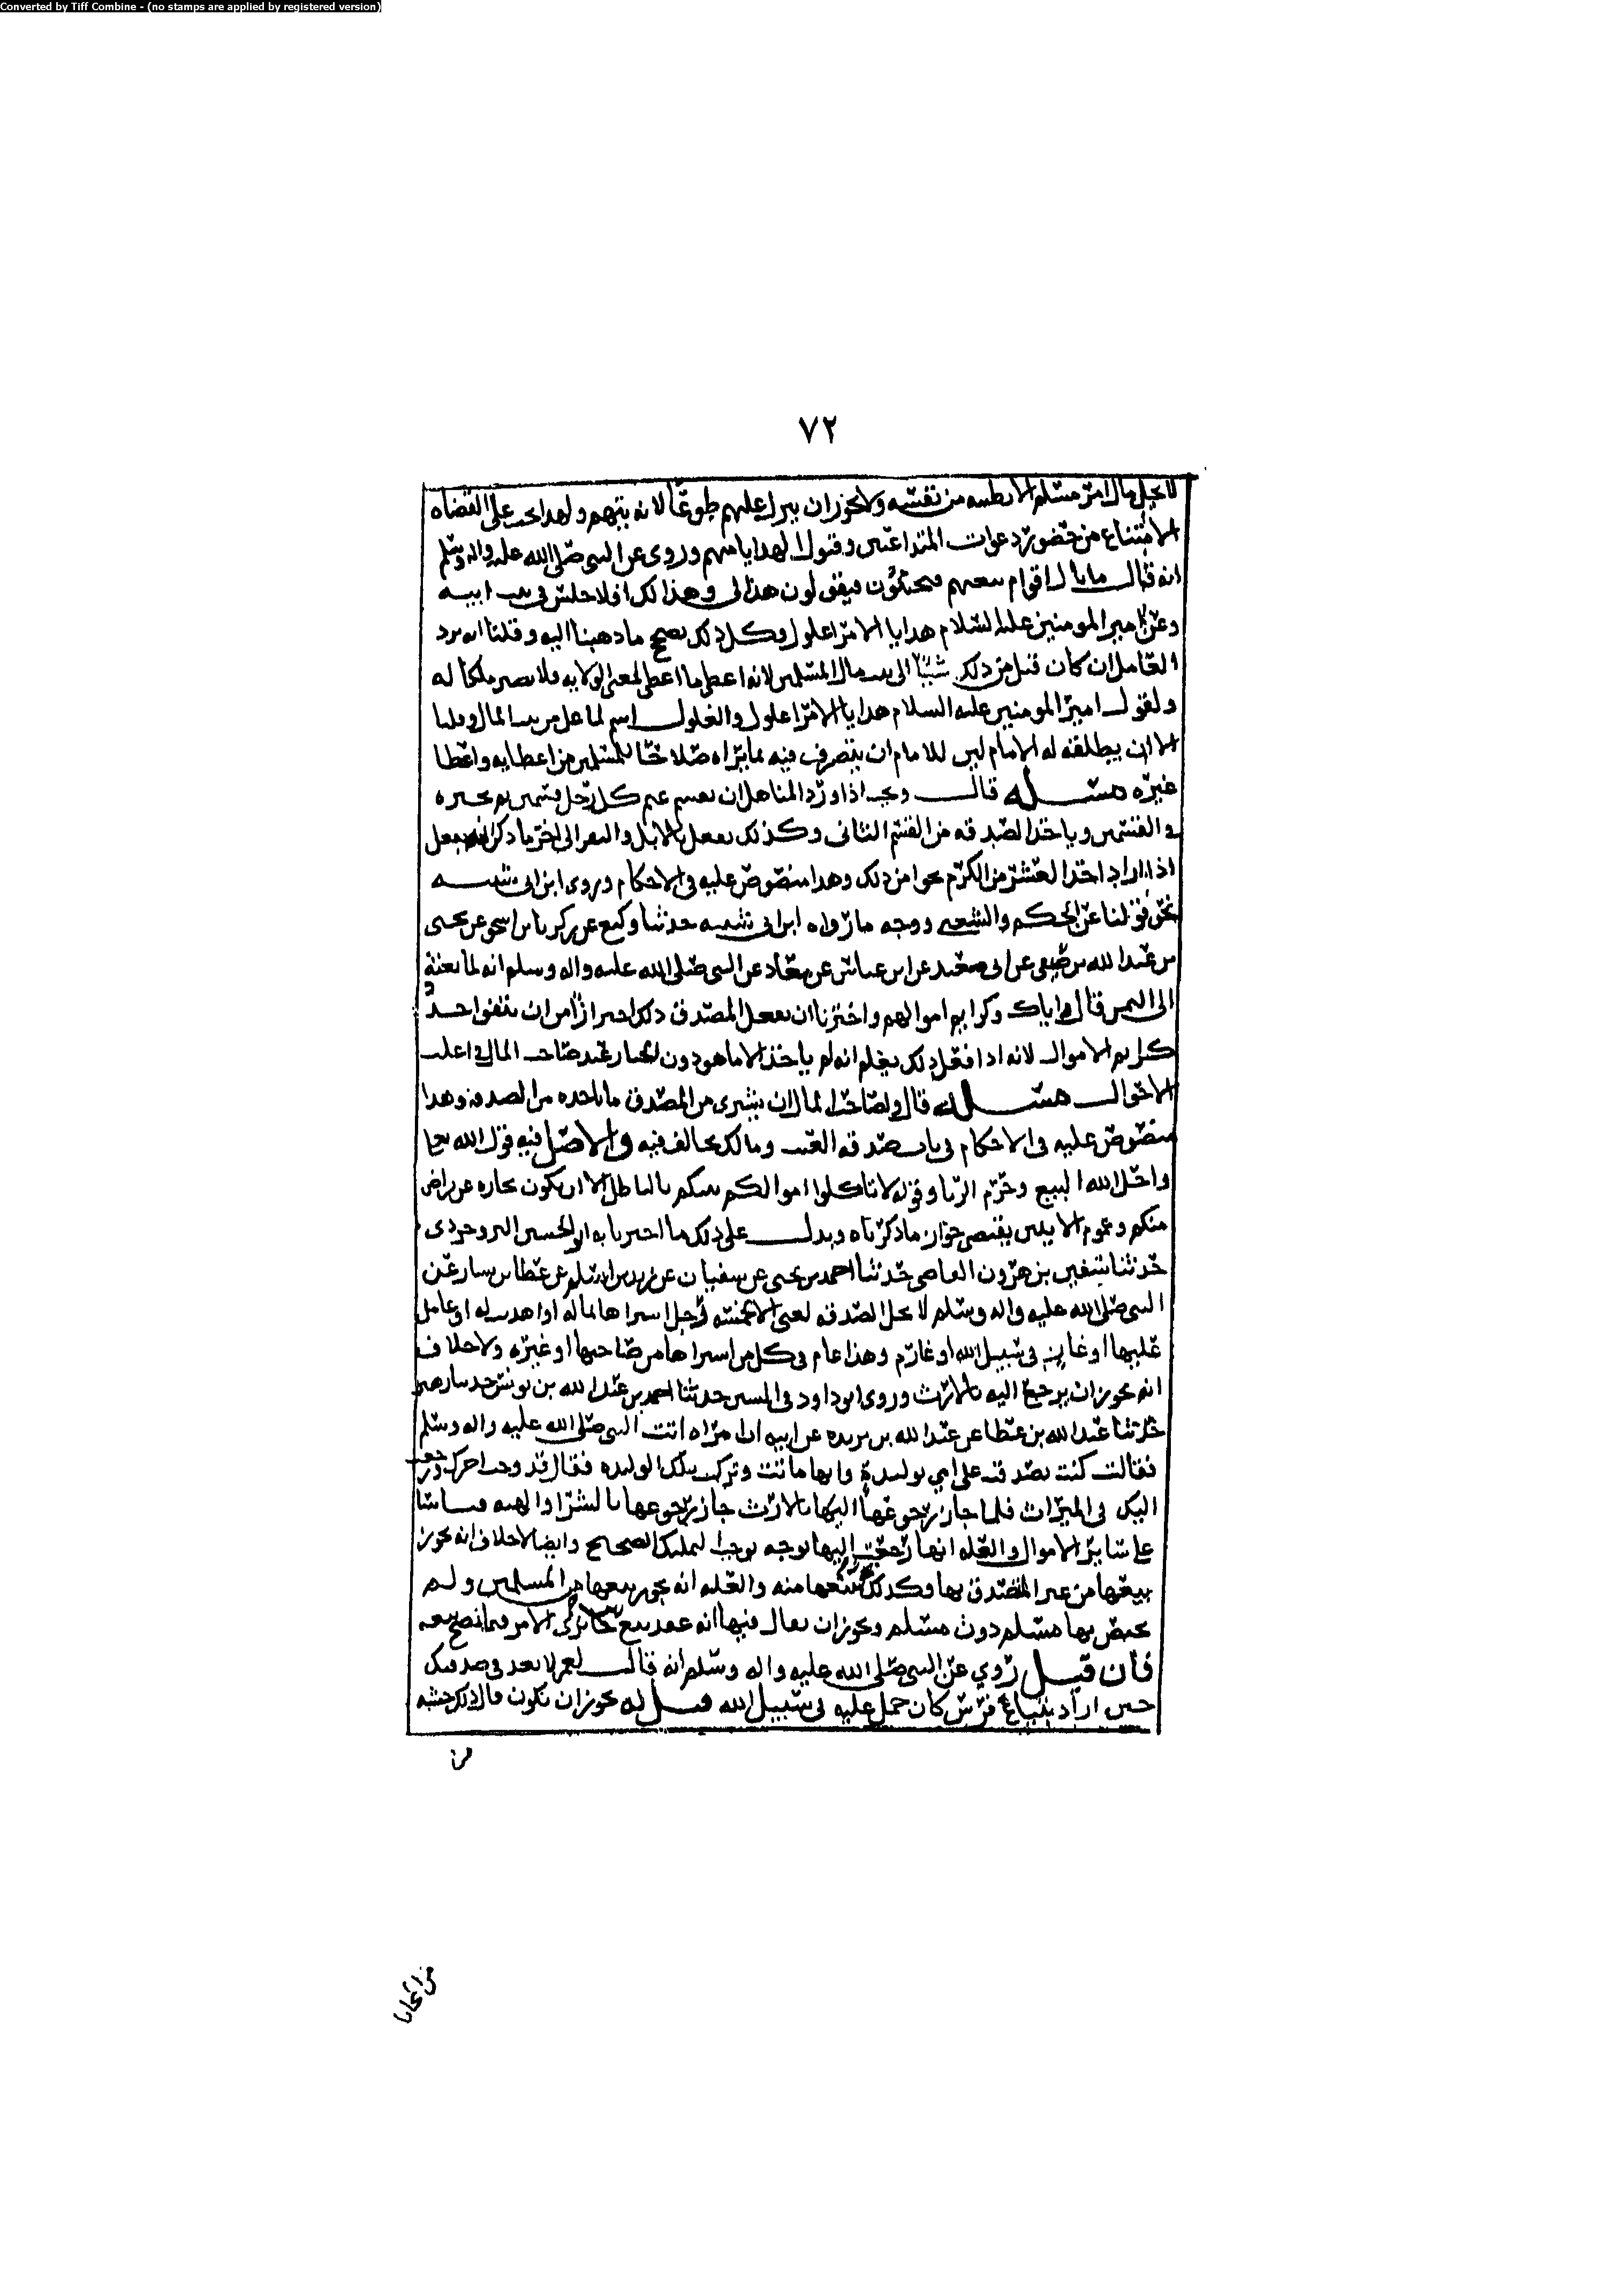 Converted by Tiff Combine - (no stamps are applied by registered version)
٧٢
لا يحل مال امرئ مسلم الا بطيبه من نفسه ولا يجوز ان ينزل عليهم طوعا لانه يتهم ولهذا يجب على القضاه
الامتناع من حضور دعوات المتداعين وقبول الهدايا منهم وروي عن النبي صلى الله عليه واله وسلم
انه قال ما بال اقوام نبعثهم فيقولون هذا لي وهذا لك افلا جلس في بيت ابيه
وعن امير المومنين عليه السلام هدايا الامرا غلول وكل ذلك يصحح ما ذهبنا اليه وقلنا انه يرد
العامل ان كان قبل من ذلك شيئا الى بيت مال المسلمين لانه اعطي ما اعطي لمعنى الولايه ولا يصير ملكا له
ولقول امير المومنين عليه السلام هدايا الامرا غلول والغلول اسم لما غل من بيت المال وقلنا
الا ان يطلقه له الامام لان للامام ان يتصرف فيه بما يراه صلاحا للمسلمين من اعطايه واعطا
غيره مسئله قال ويجب اذا ورد المناهل ان يقسم غنم كل رجل قسمين ثم يخيره
في القسمين وياخذ الصدقه من القسم الثاني وكذلك يفعل بالابل والبقر الى اخر ما ذكر انه يفعل
اذا اراد اخذ العشر من الكرم نحوا من ذلك وهذا منصوص عليه في الاحكام وروى ابن ابي شيبه
نحو قولنا عن الحكم والشعبي ووجه ما رواه ابن ابي شيبه حدثنا وكيع عن زكريا بن اسحق عن يحيى
بن عبد الله بن صيفي عن ابي معبد عن ابن عباس عن معاذ عن النبي صلى الله عليه واله وسلم انه لما بعثه
الى اليمن قال اياك وكرايم اموالهم واخترنا ان يفعل المصدق ذلك احترازا من ان يتفق اخذ
كرايم الاموال لانه اذا فعل ذلك يعلم انه لم ياخذ الا ما هو دون الخيار عند صاحب المال في اغلب
الاحوال مسئله قال ولصاحب المال ان يشتري من المصدق ما ياخذه من الصدقه وهذا
منصوص عليه في الاحكام في باب صدقه الغنم ومالك يخالف فيه والاصل فيه قول الله تعالى
واحل الله البيع وحرم الربا وقوله لا تاكلوا اموالكم بينكم بالباطل الا ان تكون تجاره عن تراض
منكم وعموم الايتين يقتضي جواز ما ذكرناه ويدل على ذلك ما اخبرنا به ابو الحسين البروجردي
حدثنا سفين بن هرون القاضي حدثنا احمد بن يحيى عن سفيان عن زيد بن اسلم عن عطا بن يسار عن
النبي صلى الله عليه واله وسلم لا تحل الصدقه لغني الا لخمسه رجل اشتراها بماله او اهديت له او عامل
عليها او غاز في سبيل الله او غارم وهذا عام في كل من اشتراها من صاحبها او غيره ولا خلاف
انه يجوز ان يرجع اليه بالارث وروى ابو داود في السنن حدثنا احمد بن عبد الله بن يونس حدثنا زهير
حدثنا عبد الله بن عطا عن عبد الله بن بريده عن ابيه ان امراه اتت النبي صلى الله عليه واله وسلم
فقالت كنت تصدقت على امي بوليدة وانها ماتت وتركت تلك الوليده فقال قد وجب اجرك ورجعت
اليك في الميراث فلما جاز رجوعها اليها بالارث جاز رجوعها بالشرا والهبه قياسا
على ساير الاموال والعله انها رجعت اليها بوجه يوجب التمليك الصحيح وايضا لا خلاف انه يجوز
بيعها من غير المتصدق بها وكذلك بيعها منه والعله انه يجوز بيعها من المسلمين ولم
يختص بها مسلم دون مسلم ويجوز ان يقال فيها انه عقد بيع الامر فيما تصح بيعه
فان قيل روي عن النبي صلى الله عليه واله وسلم انه قال لعمر لا تعد في صدقتك
حين اراد ابتياع فرس كان حمل عليه في سبيل الله قيل له يجوز ان تكون قال ذلك خشيه
من